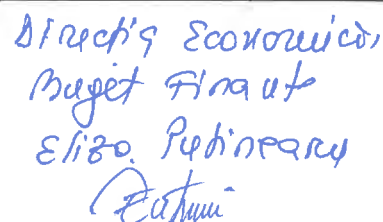 Direcția Economică,
Buget Finanțe
Eliza Putineanu